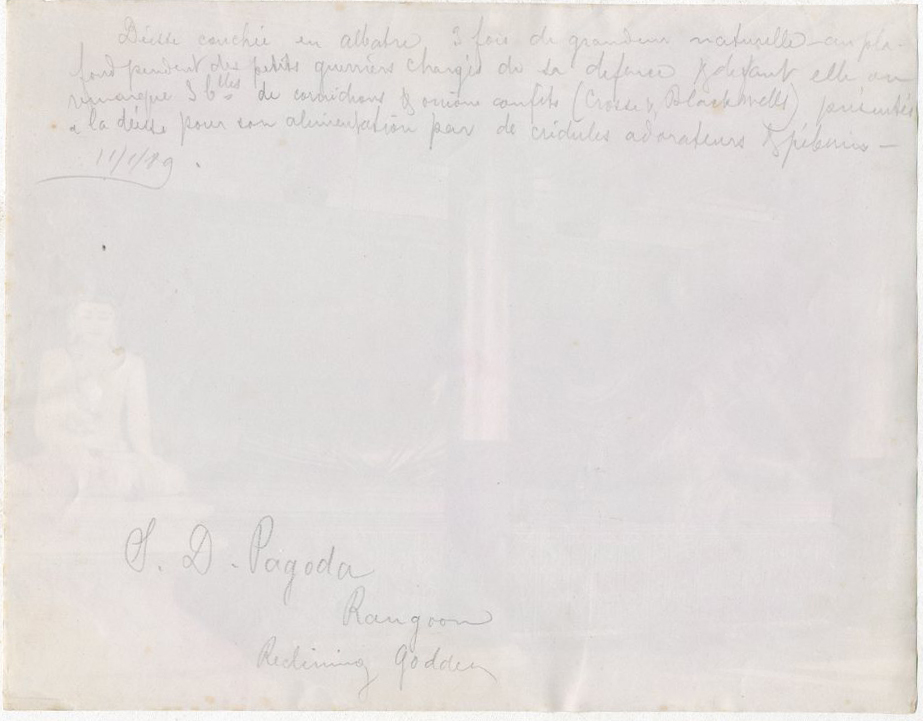 Déesse couchée en albatre 3 fois de grandeur naturelle - au pla-
fond pendent des petits guerriers chargés de sa defence & devant elle on
remarque 3 b^tles de cornichons & onions confits (Crosse & Blackwells) présentés
a la déesse pour son alimentation par de crédules adorateurs &
11/1/79.
S. D. Pagoda
Rangoon
Reclining Goddess